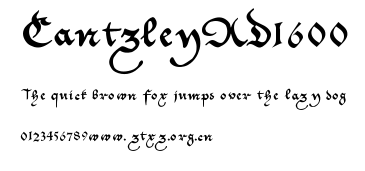 CantzleyAD1600
The quick brown fox jumps over the lazy dog
0123456789www.ztxz.org.cn